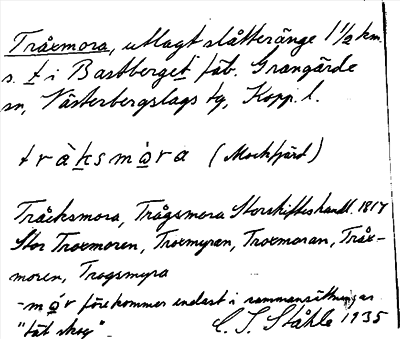 Tråxmora, utlagt slåtteränge 1 1/2 km.
s. t i Bastberget fäb. Grangärde
sn, Västerbergslags tg, Kopp. l.
tràksmåra (Mockfjärd)
Tråcksmora, Trågsmora Storskifteshandl. 1817
Stor Troxmoren, Troxmyran, Troxmoran, Tråx-
moren, Trogsmyra
-mår förekommer endast i sammansättningar
"tät skog". C. I. Ståhle 1935